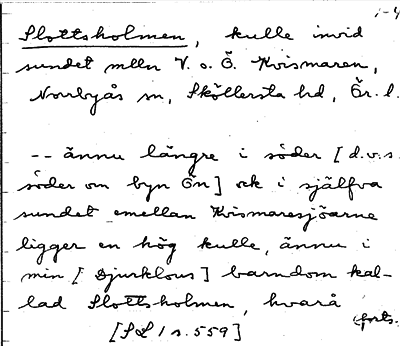 1-4
Slottsholmen, kulle invid
sundet mlln V. o. Ö. Kvismaren,
Norrbyås sn, Sköllersta hd, Ör. l.
-- ännu längre i söder [d.v.s.
söder om byn Ön] ock i själfva
sundet emellan Kvismaresjöarne
ligger en hög kulle, ännu i
min [Djurklous] barndom kal-
lad Slottsholmen, hvarå
forts.
[SL 1 s. 559]